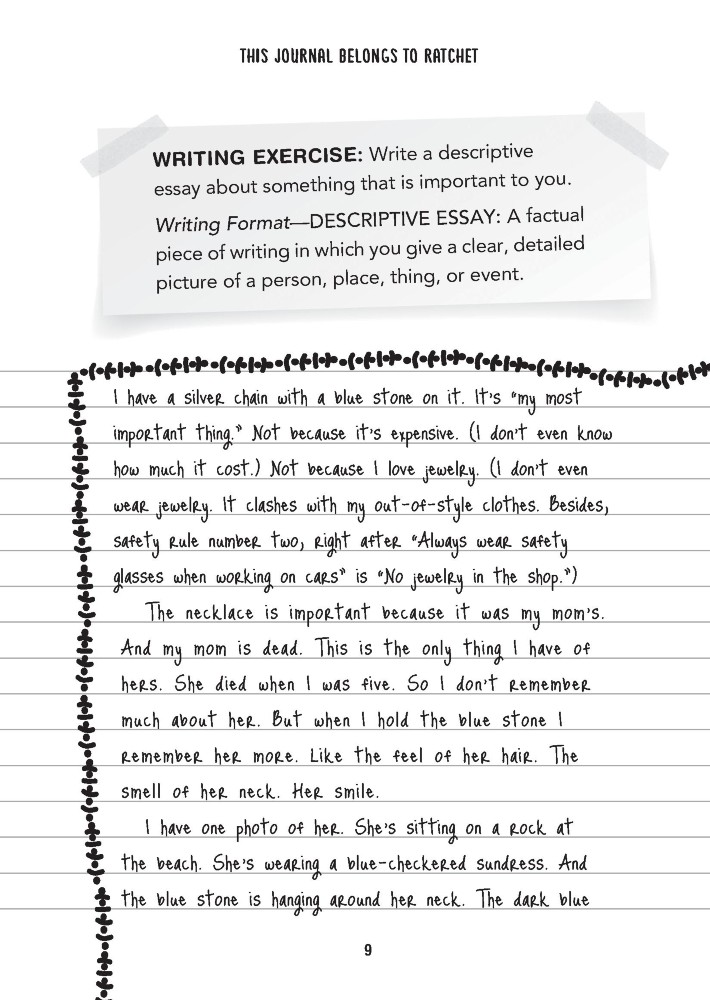 THIS JOURNAL BELONGS TO RATCHET
WRITING EXERCISE: Write a descriptive
essay about something that is important to you.
Writing Format—DESCRIPTIVE ESSAY: A factual
piece of writing in which you give a clear, detailed
picture of a person, place, thing, or event.
I have a silver chain with a blue stone on it. It's “my most
important thing.” Not because it's expensive. (I don't even know
how much it cost.) Not because I love jewelry. (I don't even
wear jewelry. It clashes with my out-of-style clothes. Besides,
safety rule number two, right after “Always wear safety
glasses when working on cars” is “No jewelry in the shop.”)
The necklace is important because it was my mom's.
And my mom is dead. This is the only thing I have of
hers. She died when I was five. So I don't remember
much about her. But when I hold the blue stone I
remember her more. Like the feel of her hair. The
smell of her neck. Her smile.
I have one photo of her. She's sitting on a rock at
the beach. She's wearing a blue-checkered sundress. And
the blue stone is hanging around her neck. The dark blue
9